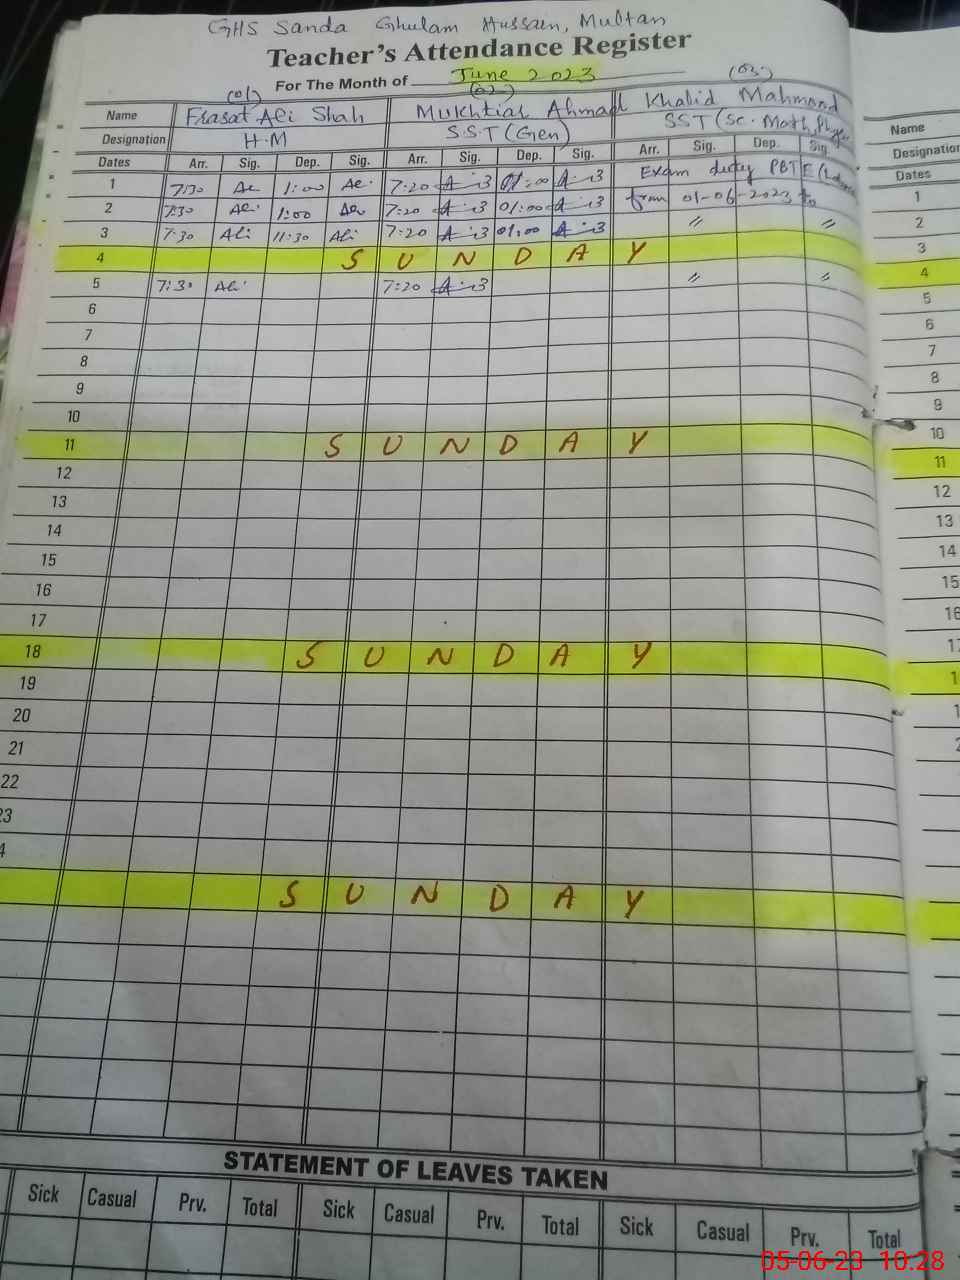 GHS Sanda Ghulam Hussain, Multan
Teacher's Attendance Register
For The Month of June 2023
(01) (02) (03)
Name Frasat Ali Shah Mukhtiar Ahmad Khalid Mahmood Name
Designation H.M S.S.T (Gen) SST (Sc. Math, Phy Designation
Dates Arr. Sig. Dep. Sig. Arr. Sig. Dep. Sig. Arr. Sig. Dep. Sig. Dates
1 7:30 1:00 7:20 01:00 Exam duty PBTE 1
2 7:30 1:00 7:20 01:00 from 01-06-2023 to 2
3 7:30 Ali 11:30 Ali 7:20 01:00 〃 〃 3
4 S U N D A Y 4
5 7:30 Ali 7:20 〃 〃 5
6 6
7 7
8 8
9 9
10 10
11 S U N D A Y 11
12 12
13 13
14 14
15 15
16 16
17 17
18 S U N D A Y
19
20
21
22
23
4
S U N D A Y
STATEMENT OF LEAVES TAKEN
Sick Casual Prv. Total Sick Casual Prv. Total Sick Casual Prv. Total
05-06-23 10:28